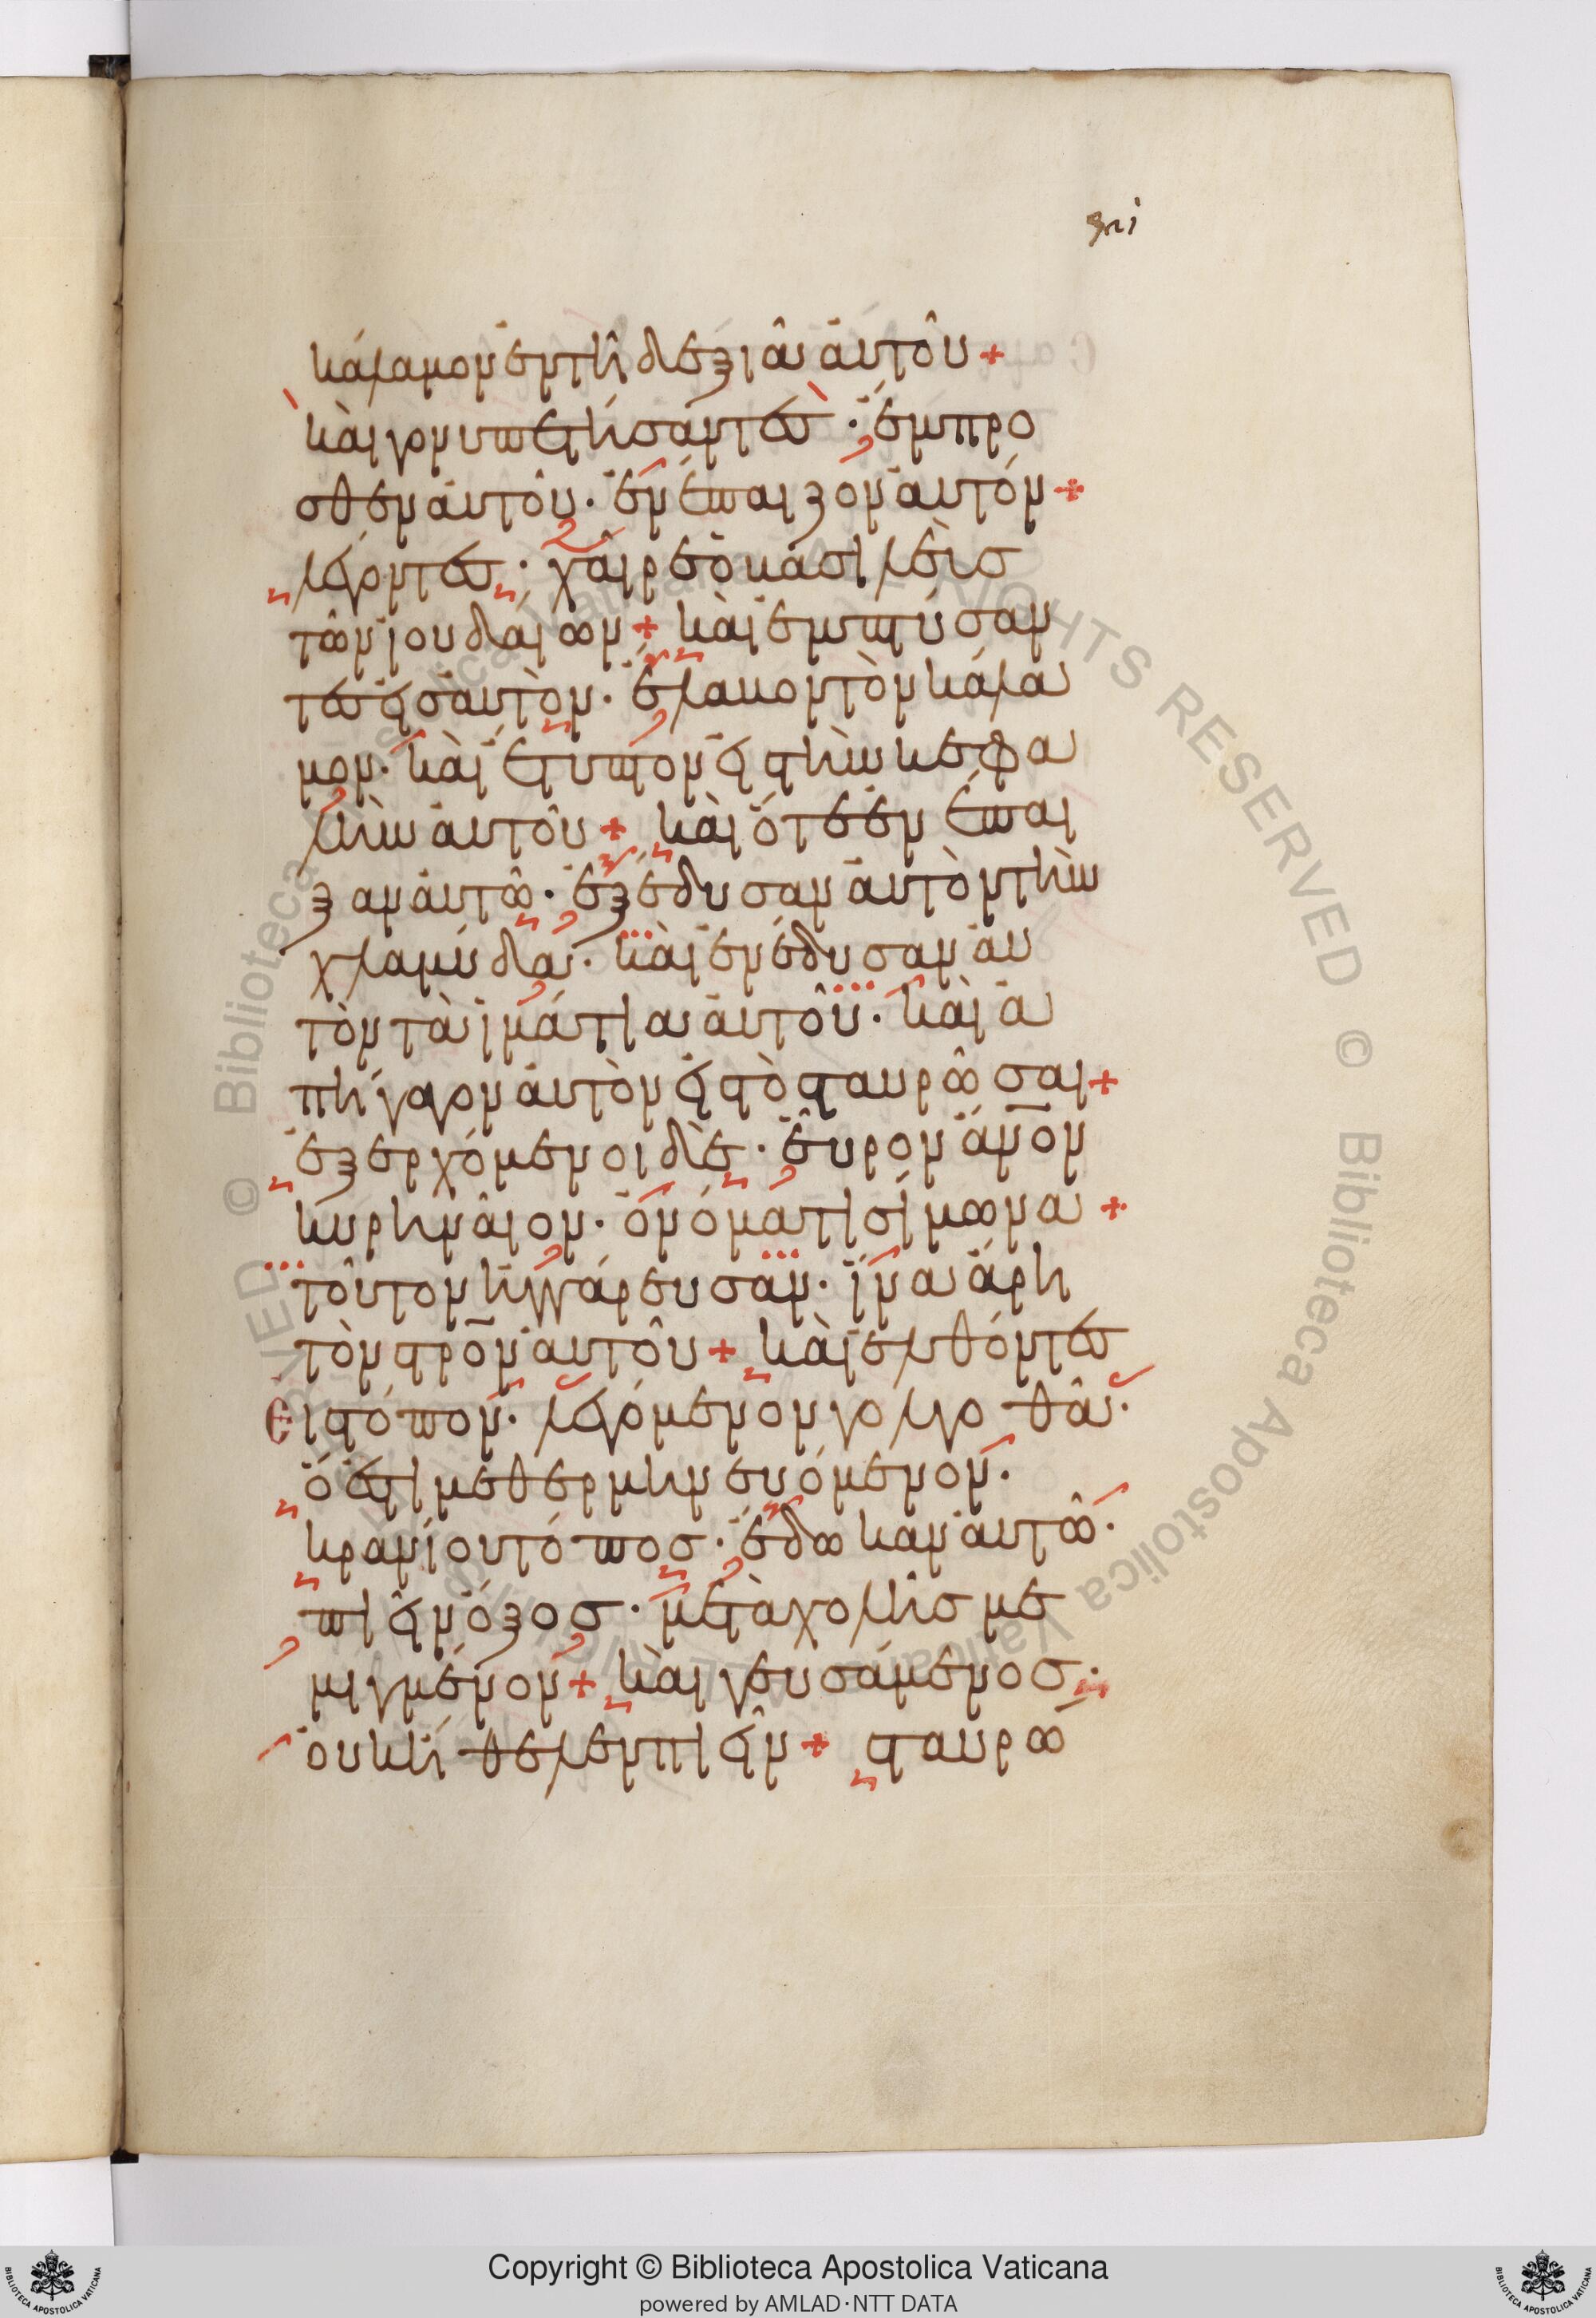 κάλαμον ἐν τῆ δεξιᾶ αὐτοῦ +
καὶ γονυπετήσαντες · ἔμπρο
σθεν αὐτοῦ · ἐνέπαιζον αὐτόν +
λέγοντες · χαῖρε ὁ βασιλεὺς
τῶν ἰουδαίων + καὶ ἐμπτύσαν
τες εἰς αὐτὸν · ἔλαβον τὸν κάλα
μον · καὶ ἔτυπτον εἰς τὴν κεφα
λὴν αὐτοῦ + καὶ ὅτε ἐνέπαι
ξαν αὐτῶ · ἐξέδυσαν αὐτὸν τὴν
χλαμύδα · καὶ ἐνέδυσαν αὐ
τὸν τὰ ἱμάτια αὐτοῦ · καὶ ἀ
πήγαγον αὐτὸν εἰς τὸ σταυρῶσαι +
ἐξερχόμενοι δὲ · εὗρον ἄν̅ον
κυρηναῖον · ὀνόματι σίμωνα +
τοῦτον ἠγγάρευσαν · ἵνα ἄρη
τὸν στρο̅ν αὐτοῦ + καὶ ἐλθόντες
εἰς τόπον · λεγόμενον γολγοθᾶ ·
ὅ ἐστι μεθερμηνευόμενον ·
κρανίου τόπος · ἔδωκαν αὐτῶ ·
πιεῖν ὄξος · μετὰ χολῆς με
μιγμένον + καὶ γευσάμενος ·
οὐκ ἤθελεν πιεῖν + σταυρώ
Copyright © Biblioteca Apostolica Vaticana
powered by AMLAD·NTT DATA